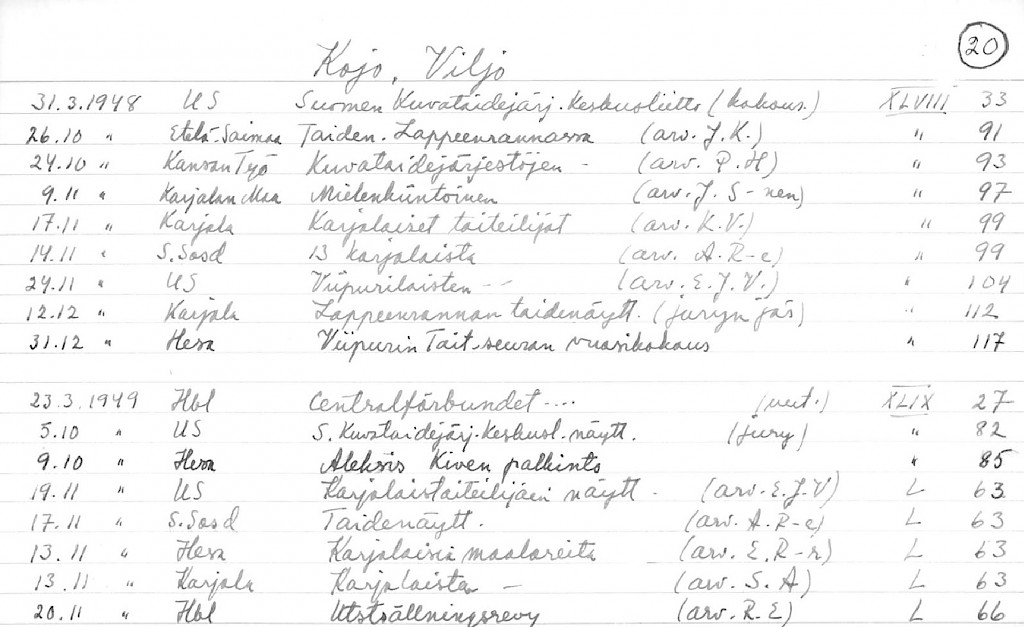 20
Kojo, Viljo
31.3.1948 US Suomen Kuvataidejärj. Keskusliitto (kokous.) XLVIII 33
26.10 " Etelä-Saimaa Taiden. Lappeenrannassa (arv. J.K.) " 91
24.10 " Kansan Työ Kuvataidejärjestöjen - (arv. P.H) " 93
9.11 " Karjalan Maa Mielenkiintoinen (arv. J. S-nen) " 97
17.11 " Karjala Karjalaiset taiteilijat (arv. K.V.) " 99
14.11 " S.Sosd 13 karjalaista (arv. A.R-e) " 99
24.11 " US Viipurilaisten -- (arv. E.J.V.) " 104
12.12 " Karjala Lappeenrannan taidenäytt. (juryn jäs) " 112
31.12 " Hesa Viipurin Tait.seuran vuosikokous " 117
23.3.1949 Hbl Centralförbundet .... (uut.) XLIX 27
5.10 " US S. Kuvataidejärj. Keskusl. näytt. (jury) " 82
9.10 " Hesa Aleksis Kiven palkinto " 85
19.11 " US Karjalaistaiteilijain näytt - (arv. E.J.V) L 63
17.11 " S.Sosd Taidenäytt. (arv. A.R-e) L 63
13.11 " Hesa Karjalaisia maalareita (arv. E.R-r) L 63
13.11 " Karjala Karjalaista - (arv. S.A) L 63
20.11 " Hbl Utställningsrevy (arv. R.E) L 66